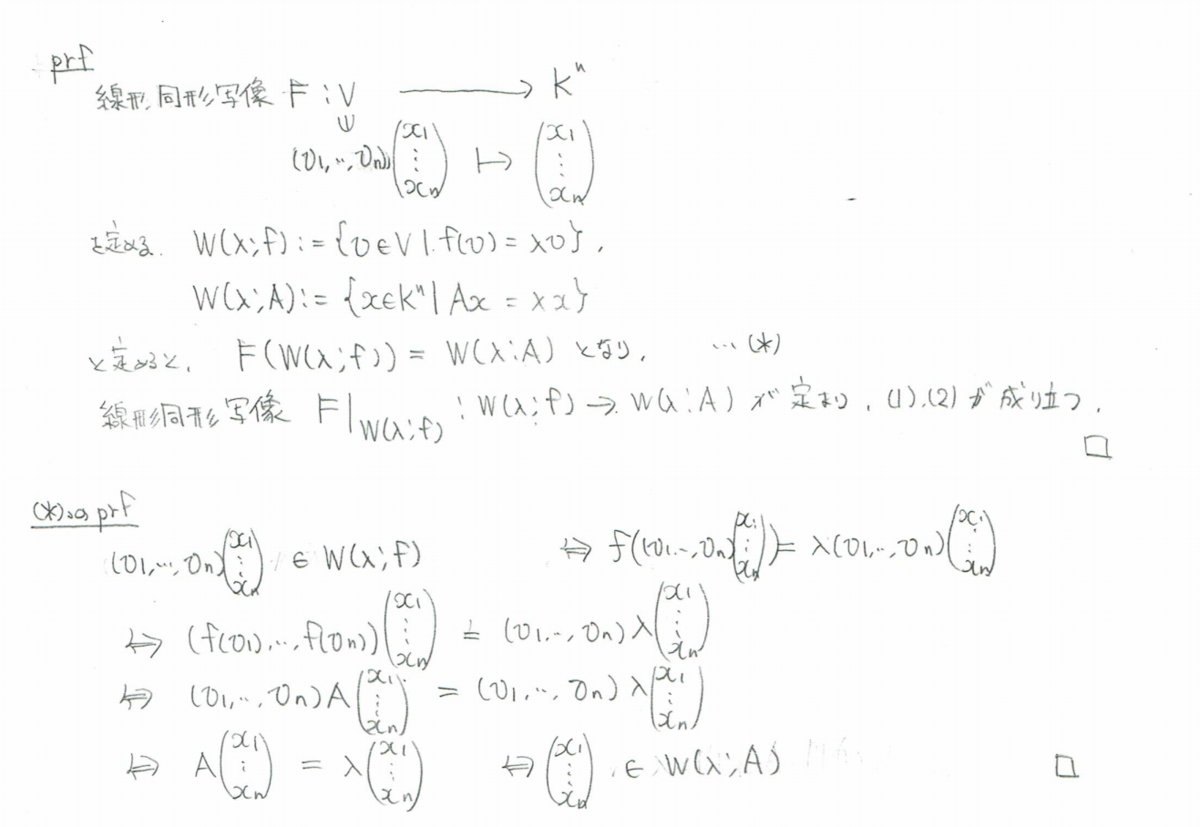 prf
線形同形写像 F : V ⟶ Kⁿ
∈
(v₁,…,vₙ)(x₁ ⋮ xₙ) ↦ (x₁ ⋮ xₙ)
を定める. W(λ;f) := {v∈V | f(v) = λv},
W(λ;A) := {x∈Kⁿ | Ax = λx}
と定めると, F(W(λ;f)) = W(λ;A) となり, …(*)
線形同形写像 F|_{W(λ;f)} : W(λ;f) → W(λ;A) が 定まり, (1),(2) が 成り立つ.
□
(*)の prf
(v₁,…,vₙ)(x₁ ⋮ xₙ) ∈ W(λ;f) ⇔ f((v₁…,vₙ)(x₁ ⋮ xₙ)) = λ(v₁…,vₙ)(x₁ ⋮ xₙ)
⇔ (f(v₁),…,f(vₙ))(x₁ ⋮ xₙ) = (v₁…,vₙ)λ(x₁ ⋮ xₙ)
⇔ (v₁,…,vₙ)A(x₁ ⋮ xₙ) = (v₁,…,vₙ)λ(x₁ ⋮ xₙ)
⇔ A(x₁ ⋮ xₙ) = λ(x₁ ⋮ xₙ) ⇔ (x₁ ⋮ xₙ) ∈ W(λ;A) □